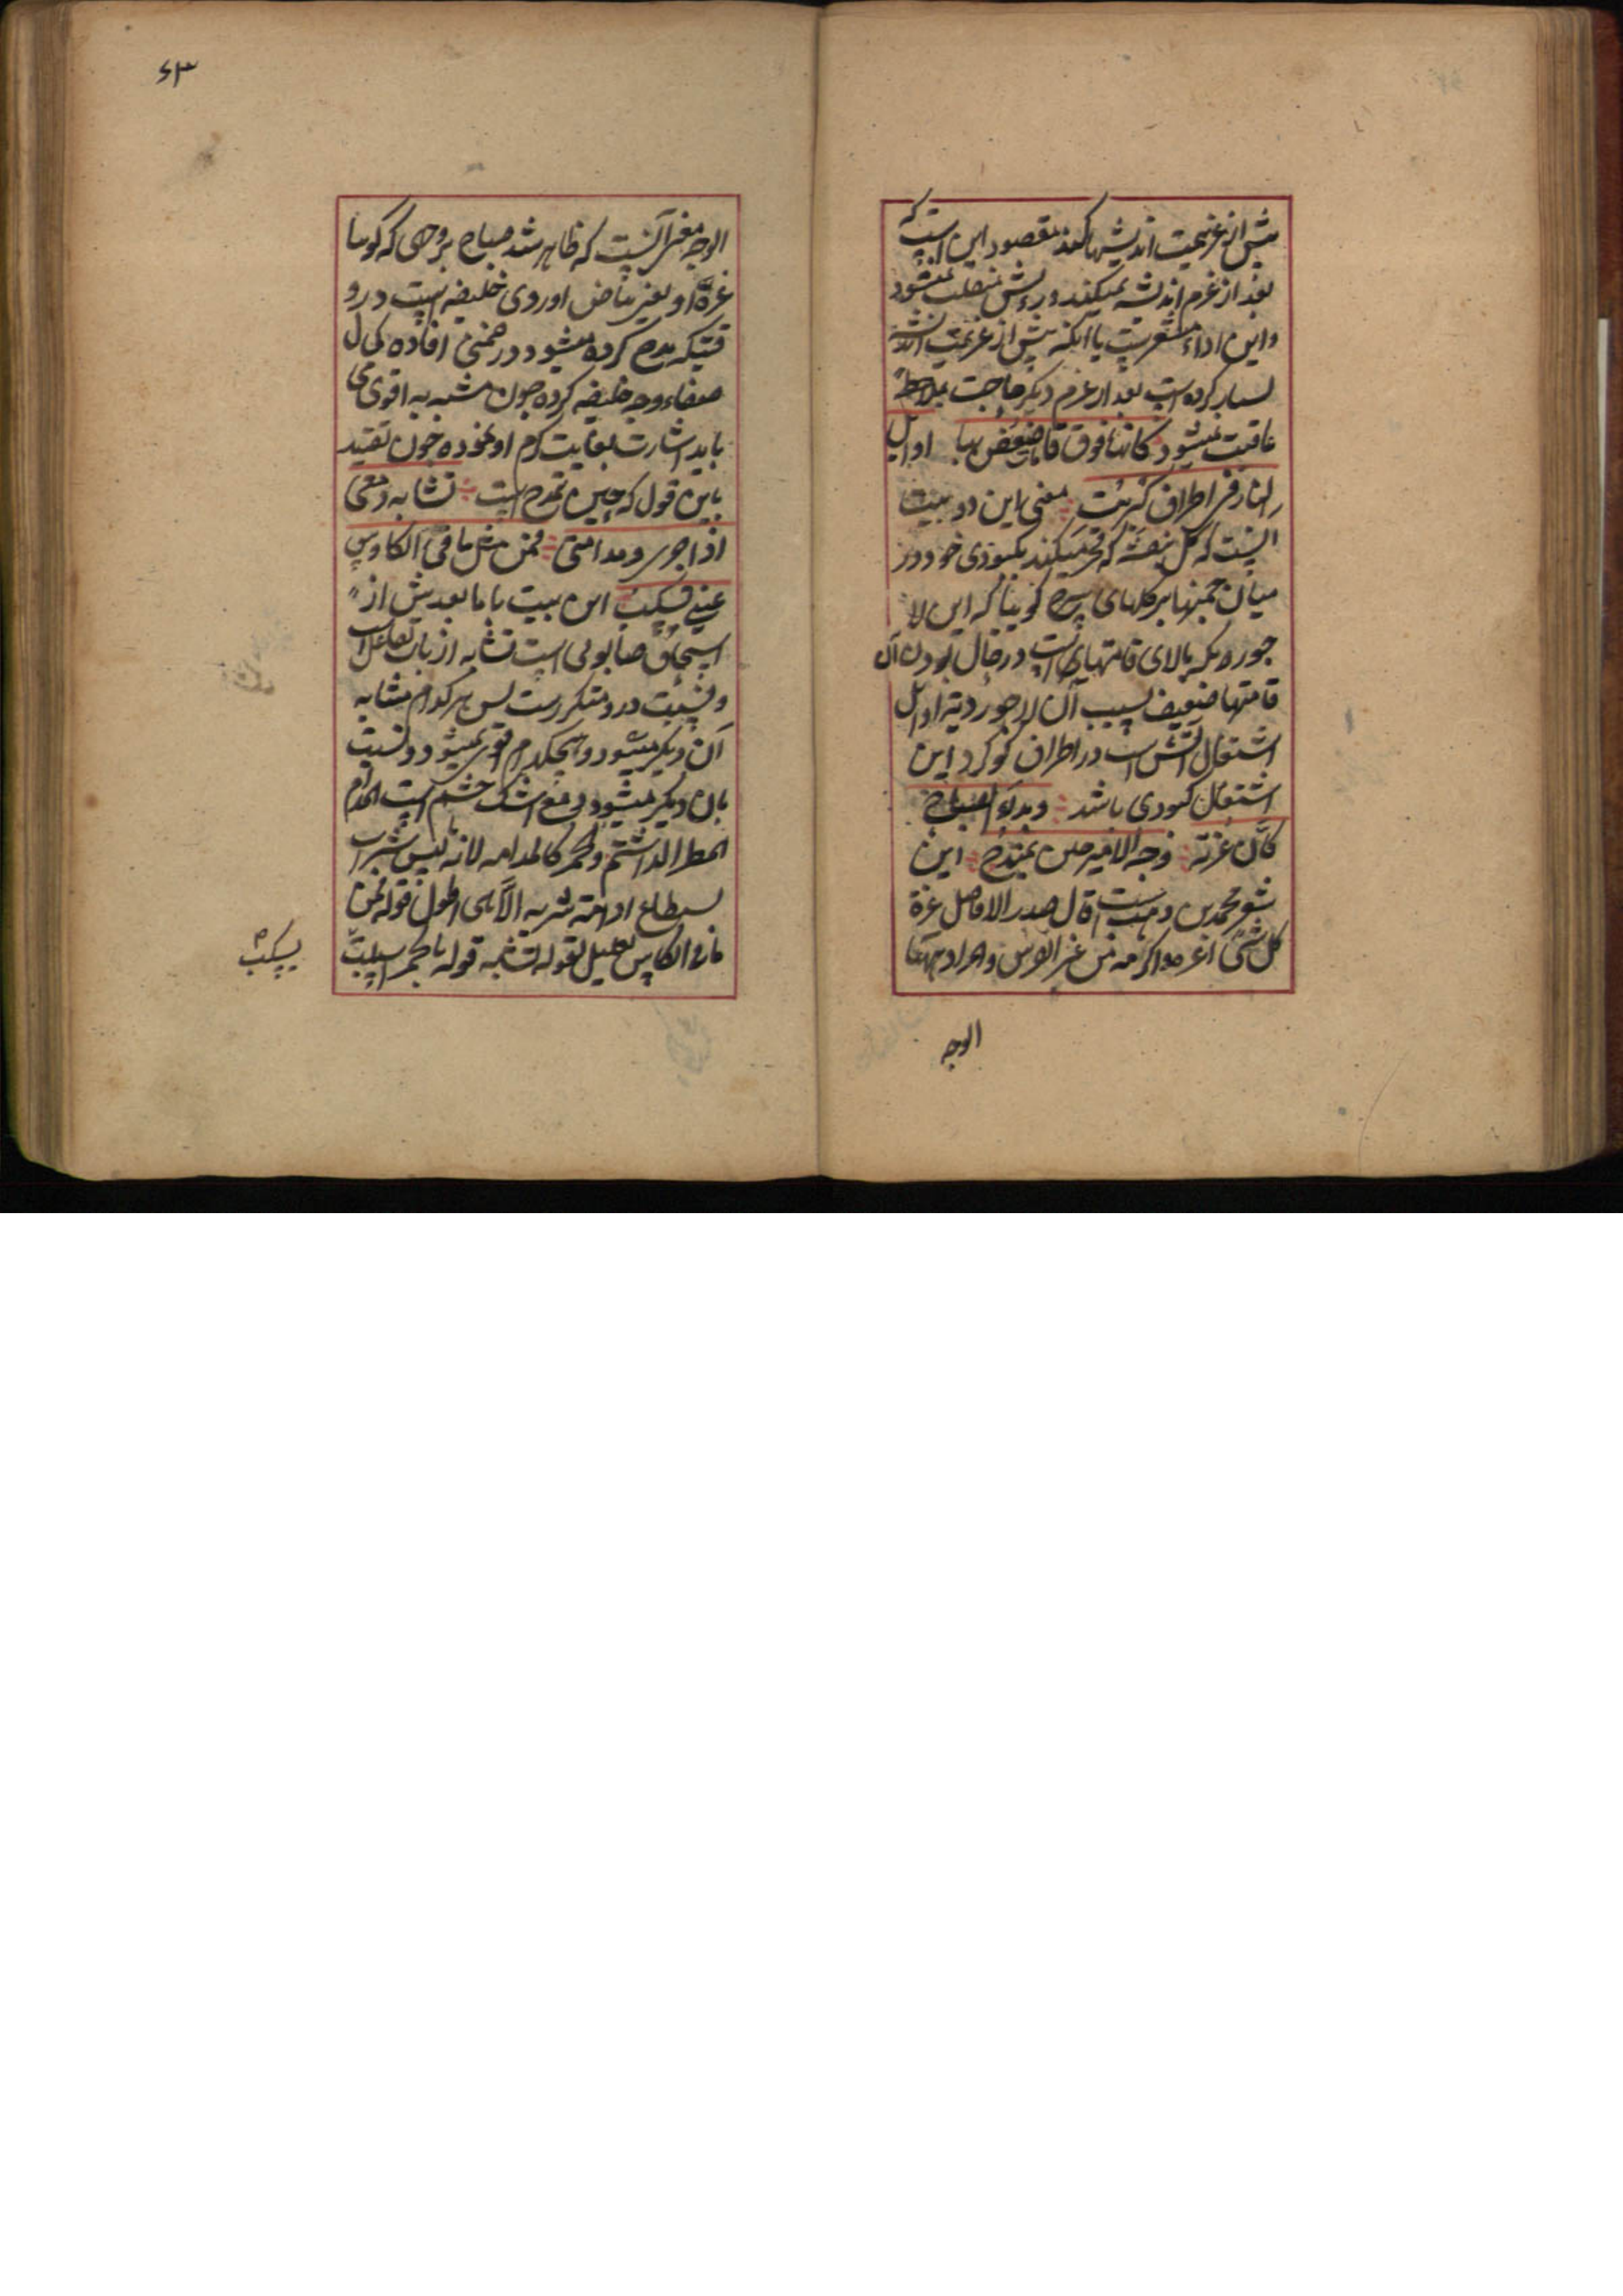 پیش از عزیمت اندیشها کند مقصود این است که
بعد از عزم اندیشه نمیکند و رویش منقلب نمیشود
و این اداء مشعرست باآنکه پیش از عزیمت اندیشه
بسیار کرده است بعد از عزم دیگر حاجت بملاحظهٔ
عاقبت نمیشود کانها فوق قامات ضعفن بها اوایل
النار فی اطراف کبریت معنی این دو بیت
آنست که گل بنفشه که فخر میکند بکبودی خود در
میان چمنها بر گلهای سرخ گوییا که این لا
جوردیکه بالای قامتهای است در حال بودن آن
قامتها ضعیف بسبب آن لاجوردیة اوایل
اشتعال آتش است در اطراف گوگرد این
اشتعال کبودی باشد و بدا الصباح
کان غرته وجه الامیر حین یمتدح این
شعر محمد بن وهیب است قال صدر الافاضل غرة
کل شیٔ اعزه و اکرمه من غرة الفرس و المراد ههنا
الوجه
۶۳
الوجه معنی آنست که ظاهر شد صباح بر وجهی که گوییا
غرهٔ او یعنی بیاض او روی خلیفه است در و
قتیکه مدح کرده میشود در ضمن افاده کمال
صفاء وجه خلیفه کرده چون مشبه به اقوی می
باید اشارت بغایت کرم او نموده چون تقیید
باین قول که حین تمدح است تشابه دمعی
اذا جری و مدامتی فمن مثل ما فی الکاس
عینی تسکب این بیت با ما بعدش از
اسحاق صابونی است تشابه از باب تفاعل است
و نسبت درو متکررست پس هر کدام مشابه
آن دیگر میشود و هیچکدام قوی نمیشود و نسبت
بآن دیگر میشود دمع اشک چشم است المدام
المطر الدائم و الخمر کالمدامه لانه لیس شراب
یستطاع ادامة شربه الا هی اطول قوله فمن
ما فی الکاس تعلیل لقوله تشابه قوله بالخمر اسبلت
یسکب